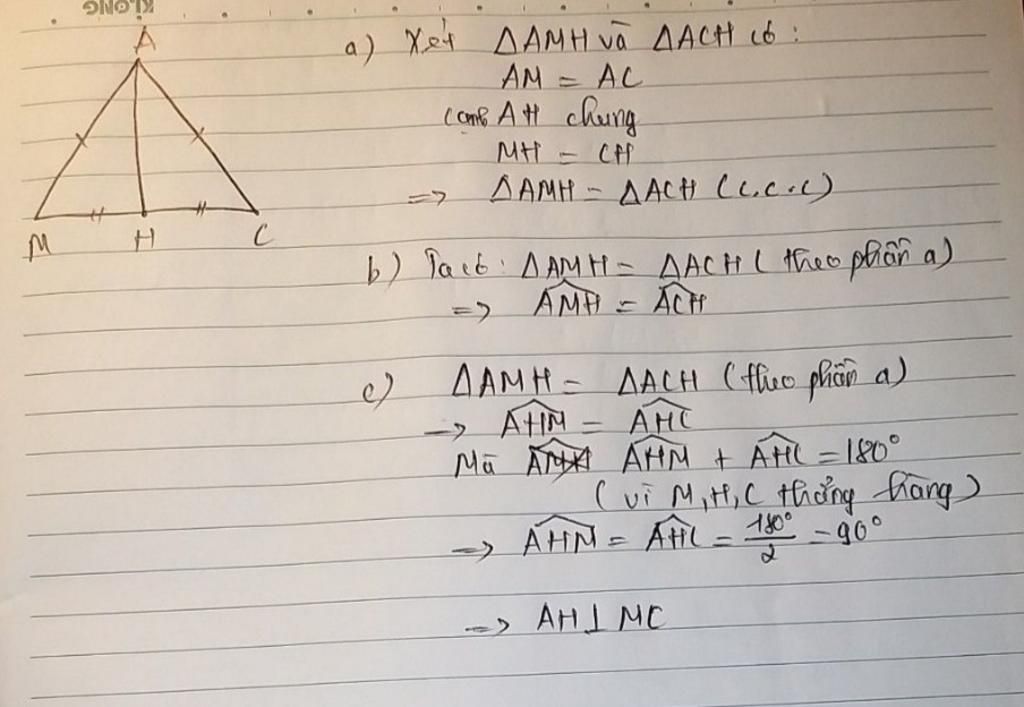 KLONG
A
M H C
a) Xét ΔAMH và ΔACH có :
AM = AC
Cạnh AH chung
MH = CH
=> ΔAMH = ΔACH (c.c.c)
b) Ta có : ΔAMH = ΔACH ( theo phần a)
=> \widehat{AMH} = \widehat{ACH}
c) ΔAMH = ΔACH (theo phần a)
=> \widehat{AHM} = \widehat{AHC}
Mà \widehat{AHM} + \widehat{AHC} = 180°
( vì M, H, C thẳng hàng)
=> \widehat{AHM} = \widehat{AHC} = \frac{180°}{2} = 90°
=> AH ⊥ MC